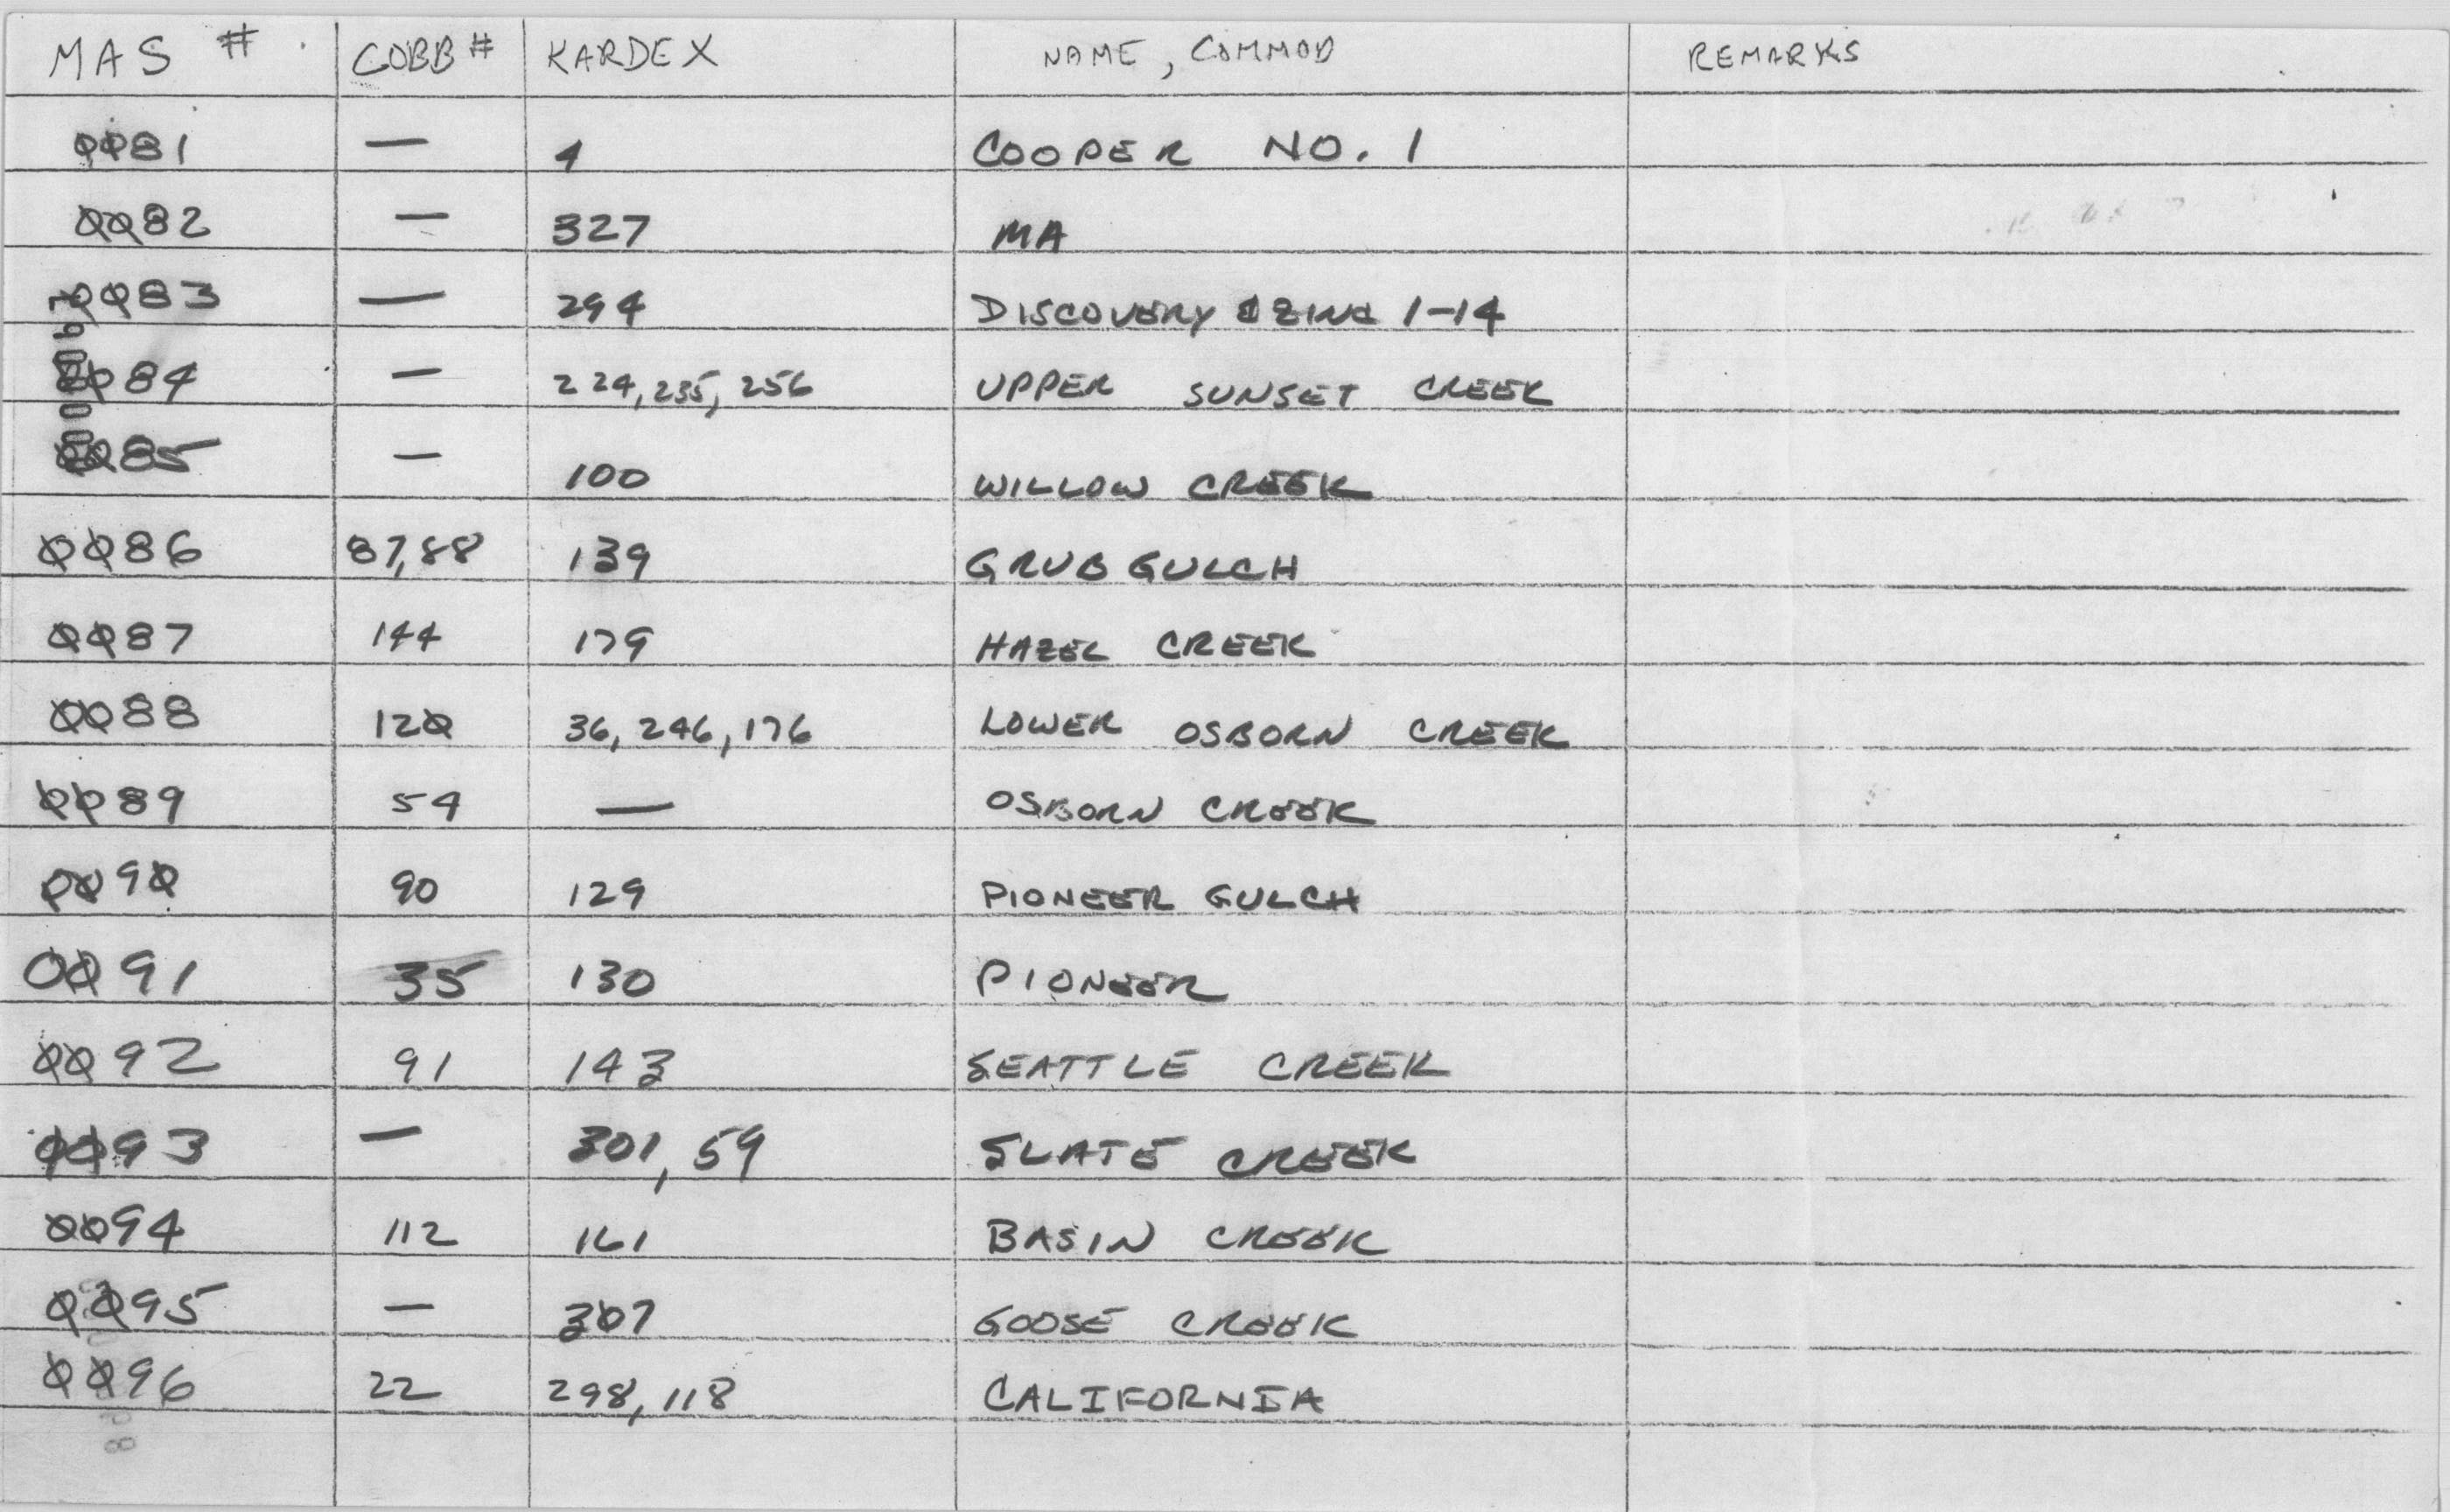 MAS # COBB # KARDEX NAME, COMMOD REMARKS
0081 — 4 COOPER NO. 1
0082 — 327 MA
0083 — 294 DISCOVERY & ZINC 1-14
0084 — 224, 235, 256 UPPER SUNSET CREEK
0085 — 100 WILLOW CREEK
0086 87,88 139 GRUB GULCH
0087 144 179 HAZEL CREEK
0088 120 36, 246, 176 LOWER OSBORN CREEK
0089 54 — OSBORN CREEK
0090 90 129 PIONEER GULCH
0091 35 130 PIONEER
0092 91 143 SEATTLE CREEK
0093 — 301, 59 SLATE CREEK
0094 112 161 BASIN CREEK
0095 — 307 GOOSE CREEK
0096 22 298, 118 CALIFORNIA